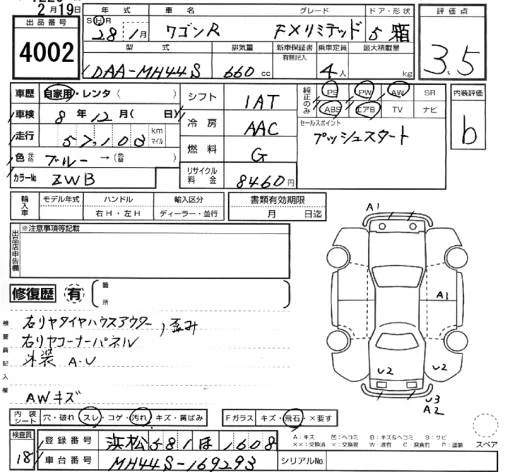 2月19日
出品番号
4002
年式 車名 グレード ドア・形状 評価点
S H 28年1月 ワゴンR FXリミテッド 5 箱 3.5
型式 排気量 新車保証書 乗車定員 最大積載量
有無記入
DAA-MH44S 660cc 4人 kg
車歴 自家用・レンタ( )
車検 8年12月( 日)
走行 57,108 km マイル
色 ブルー→( )
カラーNo ZWB
シフト 1AT
冷房 AAC
燃料 G
リサイクル料金 8460円
純正のみ PS PW AW SR
ABS エアB TV ナビ
セールスポイント
プッシュスタート
内装評価
b
輸入車 モデル年式 ハンドル 輸入区分
右H・左H ディーラー・並行
書類有効期限
月 日迄
出品店申告欄 ※注意事項等記載
修復歴 有 箇所
検査員記入欄
右リヤタイヤハウスアウター,歪み
右リヤコーナーパネル
外装 A・U
AWキズ
A1
A1
U2
U2
U3
A2
内装シート 穴・破れ スレ・コゲ・汚れ・キズ・黄ばみ Fガラス キズ・飛石・×要す
検査員 18
登録番号 浜松581ほ608
車台番号 MH44S-169293
シリアルNo.
スペア